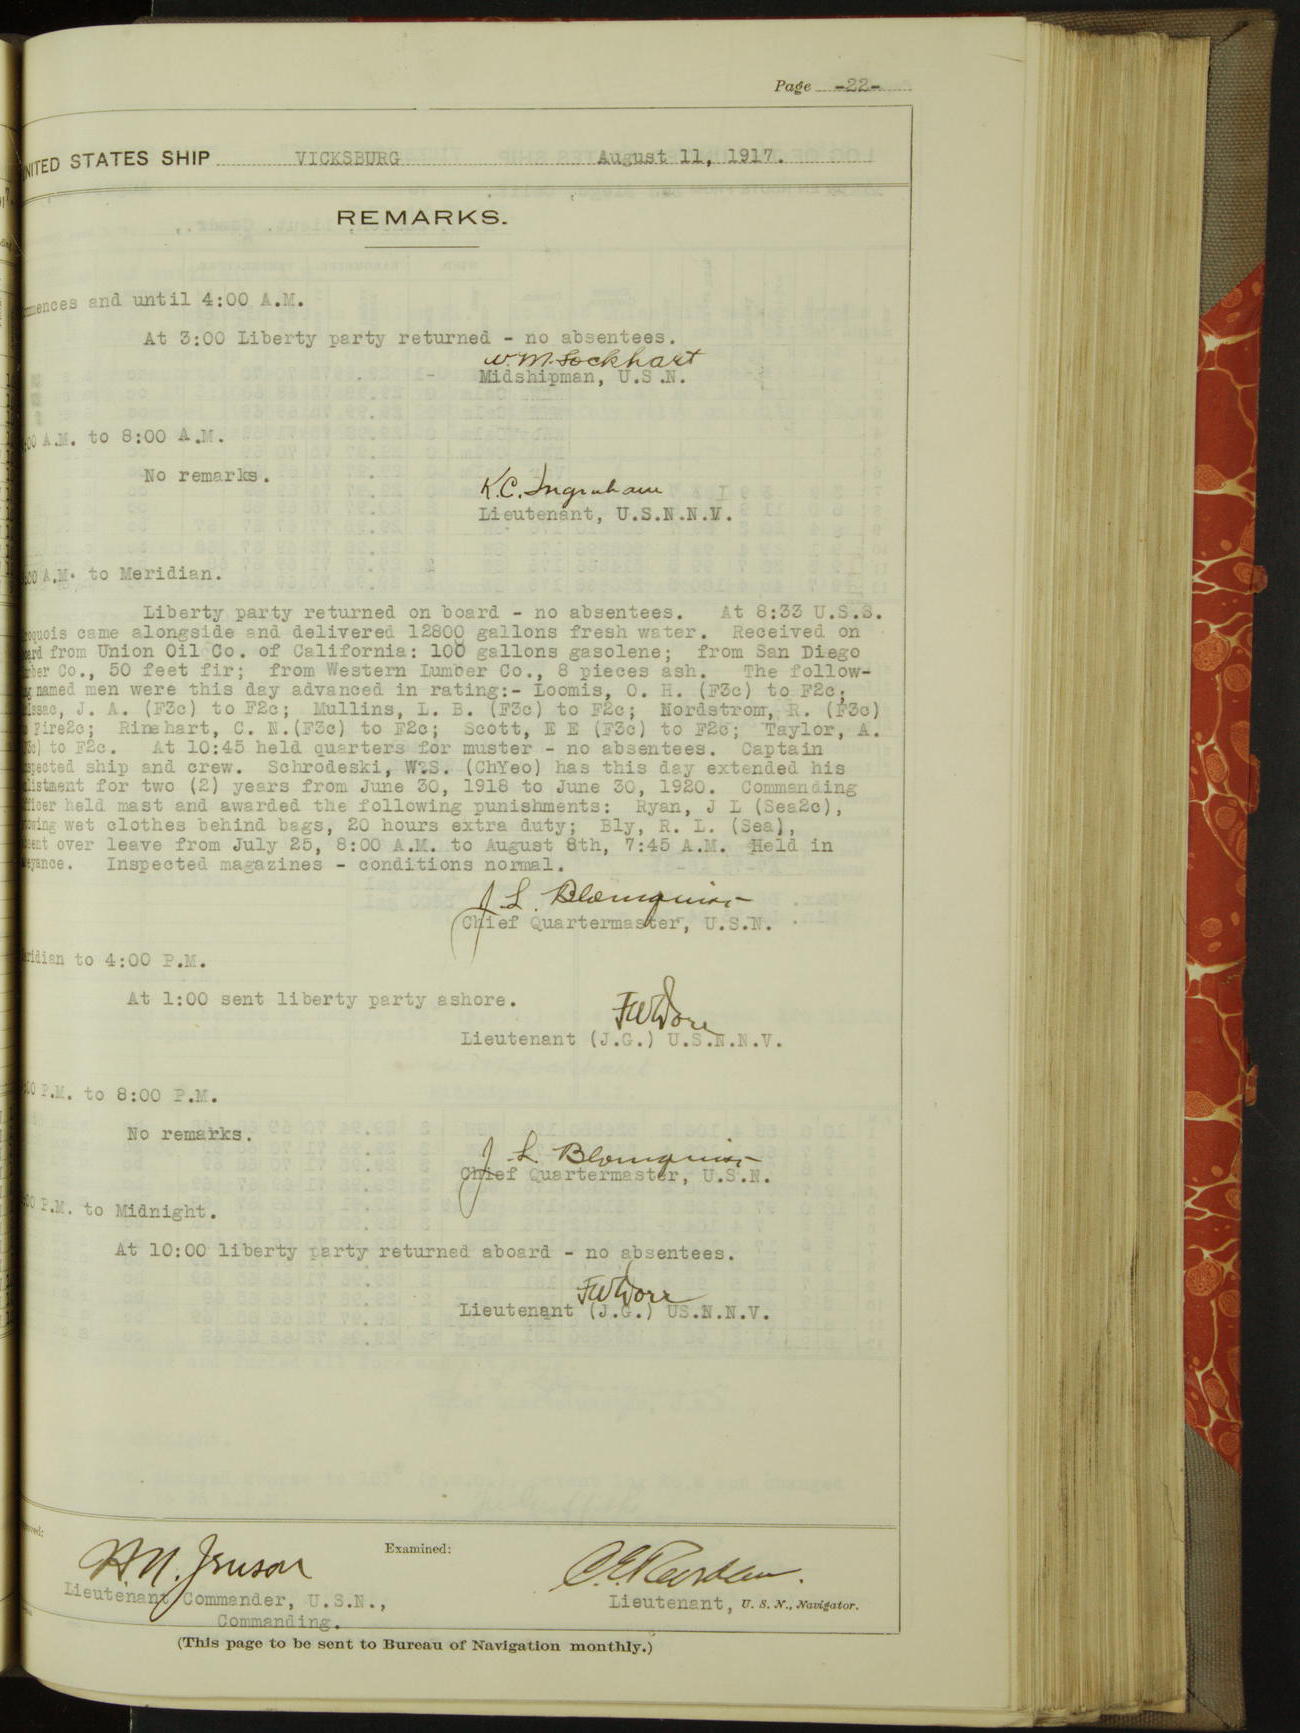 Page -22-
UNITED STATES SHIP VICKSBURG August 11, 1917.
REMARKS.
mmences and until 4:00 A.M.
At 3:00 Liberty party returned - no absentees.
W. M. Lockhart
Midshipman, U.S.N.
:00 A.M. to 8:00 A.M.
No remarks.
K.C. Ingraham
Lieutenant, U.S.N.N.V.
:00 A.M. to Meridian.
Liberty party returned on board - no absentees. At 8:33 U.S.S.
roquois came alongside and delivered 12800 gallons fresh water. Received on
oard from Union Oil Co. of California: 100 gallons gasolene; from San Diego
mber Co., 50 feet fir; from Western Lumber Co., 8 pieces ash. The follow-
g named men were this day advanced in rating:- Loomis, O. H. (F3c) to F2c;
Issac, J. A. (F3c) to F2c; Mullins, L. B. (F3c) to F2c; Nordstrom, R. (F3c)
Fire2c; Rinehart, C. N.(F3c) to F2c; Scott, E E (F3c) to F2c; Taylor, A.
3c) to F2c. At 10:45 held quarters for muster - no absentees. Captain
spected ship and crew. Schrodeski, W.S. (ChYeo) has this day extended his
listment for two (2) years from June 30, 1918 to June 30, 1920. Commanding
fficer held mast and awarded the following punishments: Ryan, J L (Sea2c),
owing wet clothes behind bags, 20 hours extra duty; Bly, R. L. (Sea),
sent over leave from July 25, 8:00 A.M. to August 8th, 7:45 A.M. Held in
eyance. Inspected magazines - conditions normal.
J. L. Blomquist
Chief Quartermaster, U.S.N.
ridian to 4:00 P.M.
At 1:00 sent liberty party ashore.
F W Dorr
Lieutenant (J.G.) U.S.N.N.V.
:00 P.M. to 8:00 P.M.
No remarks.
J. L. Blomquist
Chief Quartermaster, U.S.N.
:00 P.M. to Midnight.
At 10:00 liberty party returned aboard - no absentees.
F W Dorr
Lieutenant (J.G.) US.N.N.V.
Examined:
Lieutenant Commander, U.S.N.,
Commanding.
Lieutenant, U. S. N., Navigator.
(This page to be sent to Bureau of Navigation monthly.)